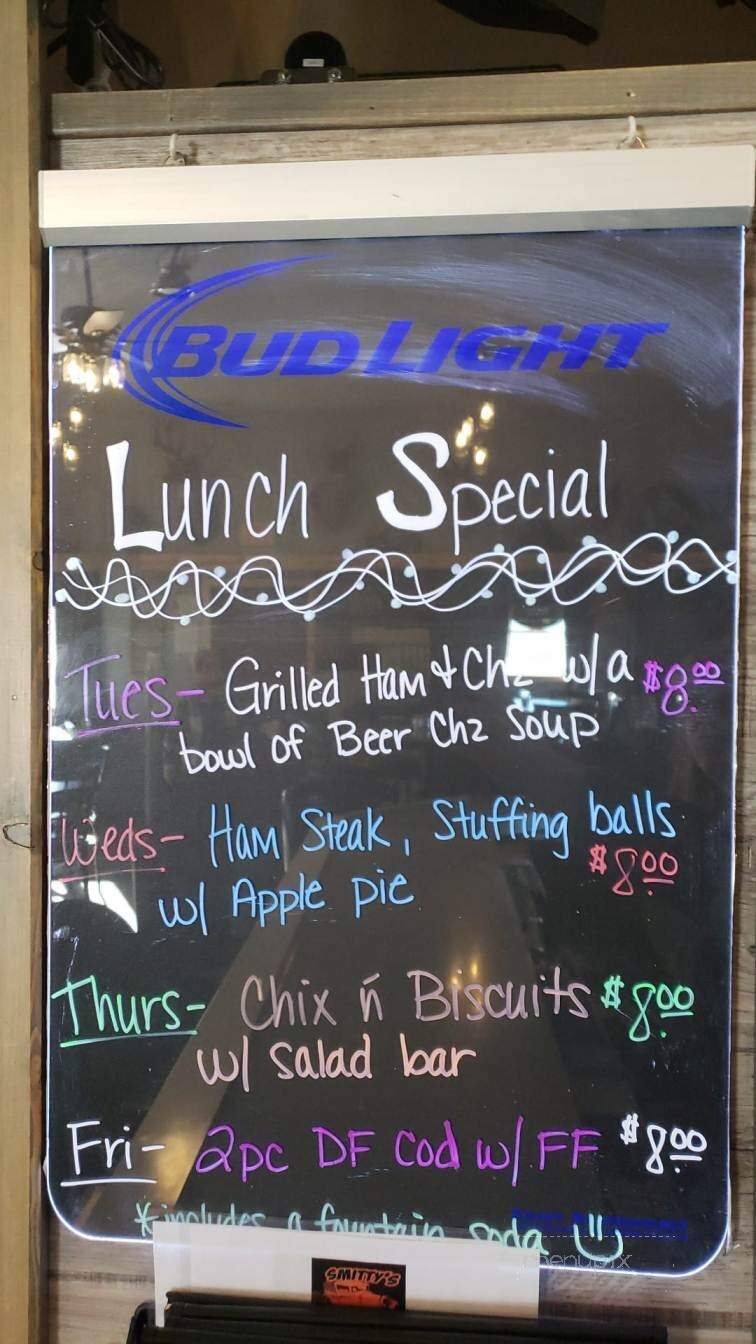 BUD LIGHT
Lunch Special
Tues- Grilled Ham & Chz w/a $8.00
bowl of Beer Chz Soup
Weds- Ham Steak, Stuffing balls
w/ Apple pie $8.00
Thurs- Chix ń Biscuits $8.00
w/ salad bar
Fri- 2pc DF Cod w/ FF $8.00
*includes a fountain soda
menupix
SMITTY'S